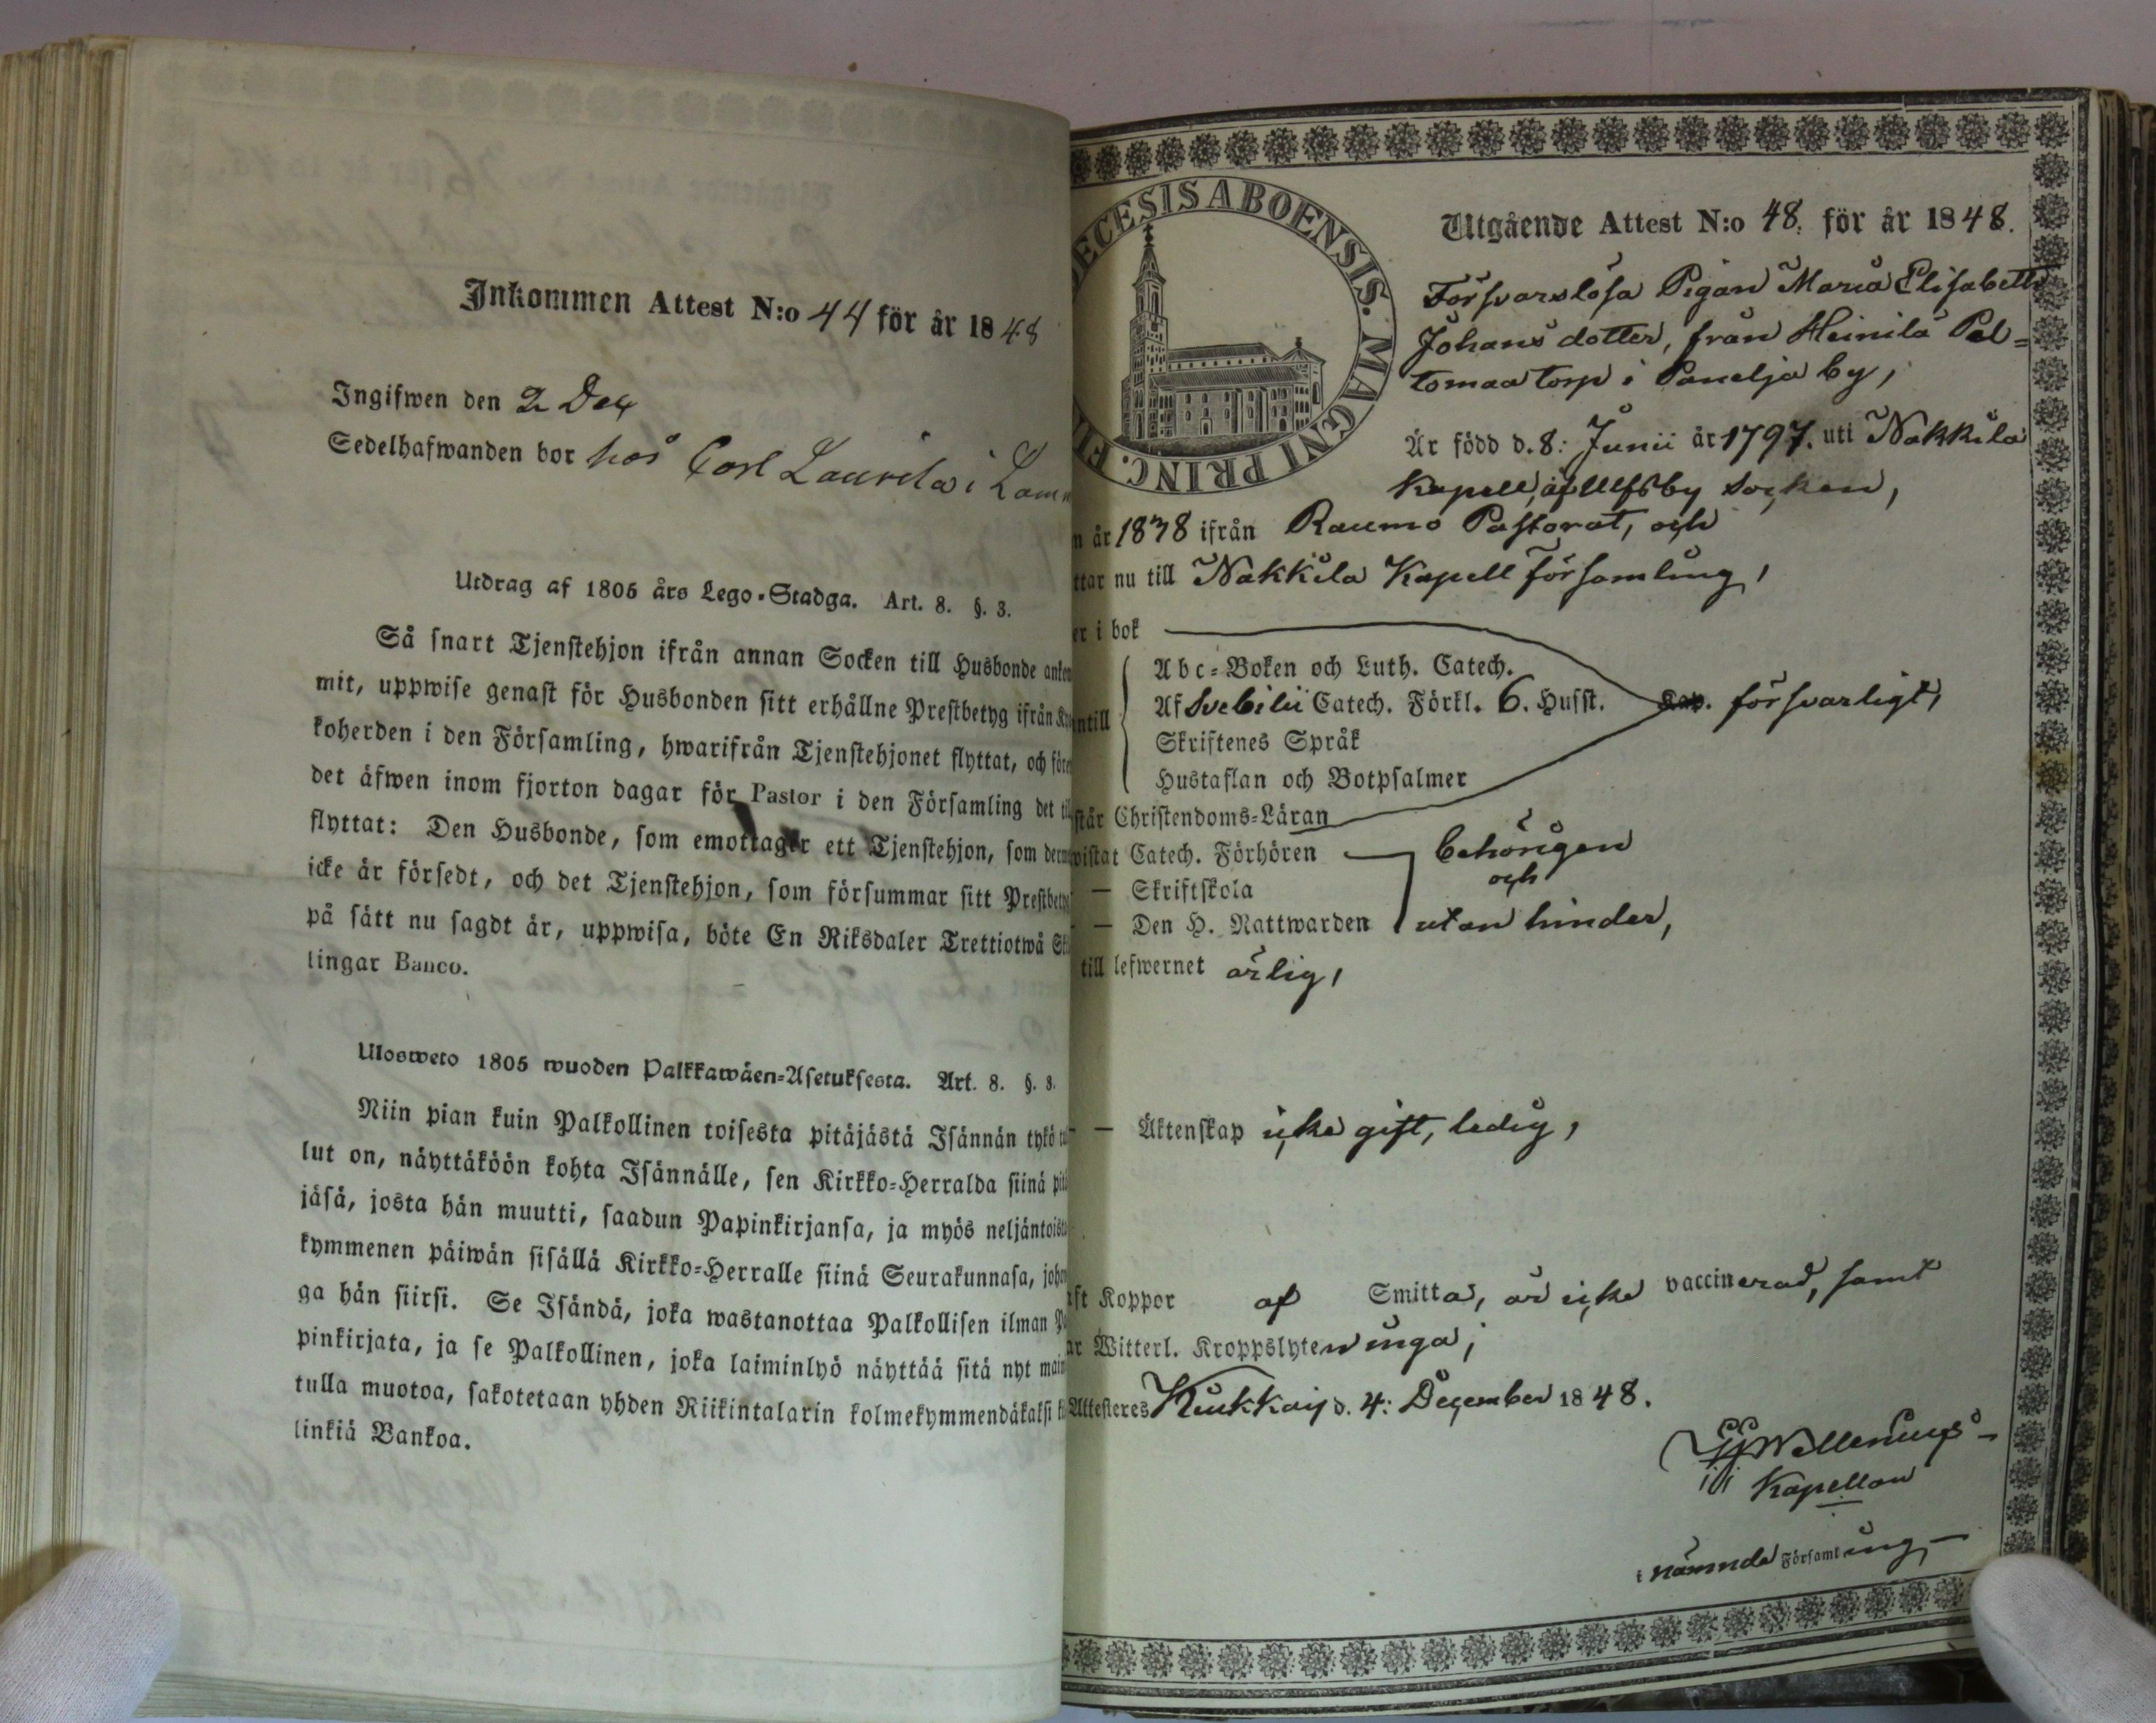 Inkommen Attest N:o 44 för år 1848
Ingifwen den 2 Dec
Sedelhafwanden bor hos Carl Laurila i Lam
Utdrag af 1805 års Lego-Stadga. Art. 8. §. 3.
Så snart Tjenstehjon ifrån annan Socken till Husbonde ankom
mit, uppwise genast för Husbonden sitt erhållne Prestbetyg ifrån Kyr
koherden i den Församling, hwarifrån Tjenstehjonet flyttat, och före
det äfwen inom fjorton dagar för Pastor i den Församling det til
flyttat: Den Husbonde, som emottager ett Tjenstehjon, som derm
icke är försedt, och det Tjenstehjon, som försummar sitt Prestbetyg
på sätt nu sagdt är, uppwisa, böte En Riksdaler Trettiotwå Skil
lingar Banco.
Ulosweto 1805 wuoden Palkkawäen-Asetuksesta. Art. 8. §. 3.
Niin pian kuin Palkollinen toisesta pitäjästä Isännän tykö tul
lut on, näyttäköön kohta Isännälle, sen Kirkko-Herralda siinä pitä
jäsä, josta hän muutti, saadun Papinkirjansa, ja myös neljäntoista
kymmenen päiwän sisällä Kirkko-Herralle siinä Seurakunnasa, johon
ga hän siirsi. Se Isändä, joka wastanottaa Palkollisen ilman Pa
pinkirjata, ja se Palkollinen, joka laiminlyö näyttää sitä nyt main
tulla muotoa, sakotetaan yhden Riikintalarin kolmekymmendäkaksi kil
linkiä Bankoa.
ECESIS ABOENSIS. MAGNI PRINC. FI
Utgående Attest N:o 48. för år 1848.
Försvarslösa Pigan Maria Elisabeth
Johans dotter, från Heinilä Pel=
tomaa torp i Panelja by,
Är född d. 8: Junii år 1797. uti Nakkila
Kapell, af Ulfsby Socken,
n år 1838 ifrån Raumo Pastorat, och
ttar nu till Nakkila Kapell Församling,
er i bok
Abc-Boken och Luth. Catech.
ntill Af Svebilii Catech. Förkl. 6. Husst. Cap. försvarligt,
Skriftenes Språk
Hustaflan och Botpsalmer
står Christendoms-Läran
wistat Catech. Förhören behörigen
— Skriftskola och
— Den H. Nattwarden utan hinder,
till lefwernet ärlig,
— Äktenskap icke gift, ledig,
ft Koppor af Smitta, är icke vaccinerad, samt
ar Witterl. Kroppslyten inga;
Attesteres Kiukkais d. 4: December 1848.
Wellenius
Kapellan
i nämnde Församling